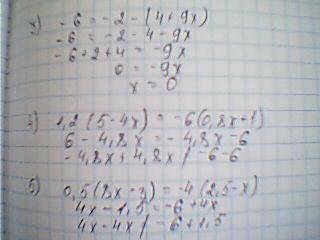 3) -6 = -2 - (4 + 9x)
-6 = -2 - 4 - 9x
-6 + 2 + 4 = -9x
0 = -9x
x = 0
4) 1,2 (5 - 4x) = -6 (0,8x - 1)
6 - 4,8x = -4,8x - 6
-4,8x + 4,8x / -6 - 6
5) 0,5 (8x - 3) = -4 (2,5 - x)
4x - 1,5 = -6 + 4x
4x - 4x / -6 + 1,5